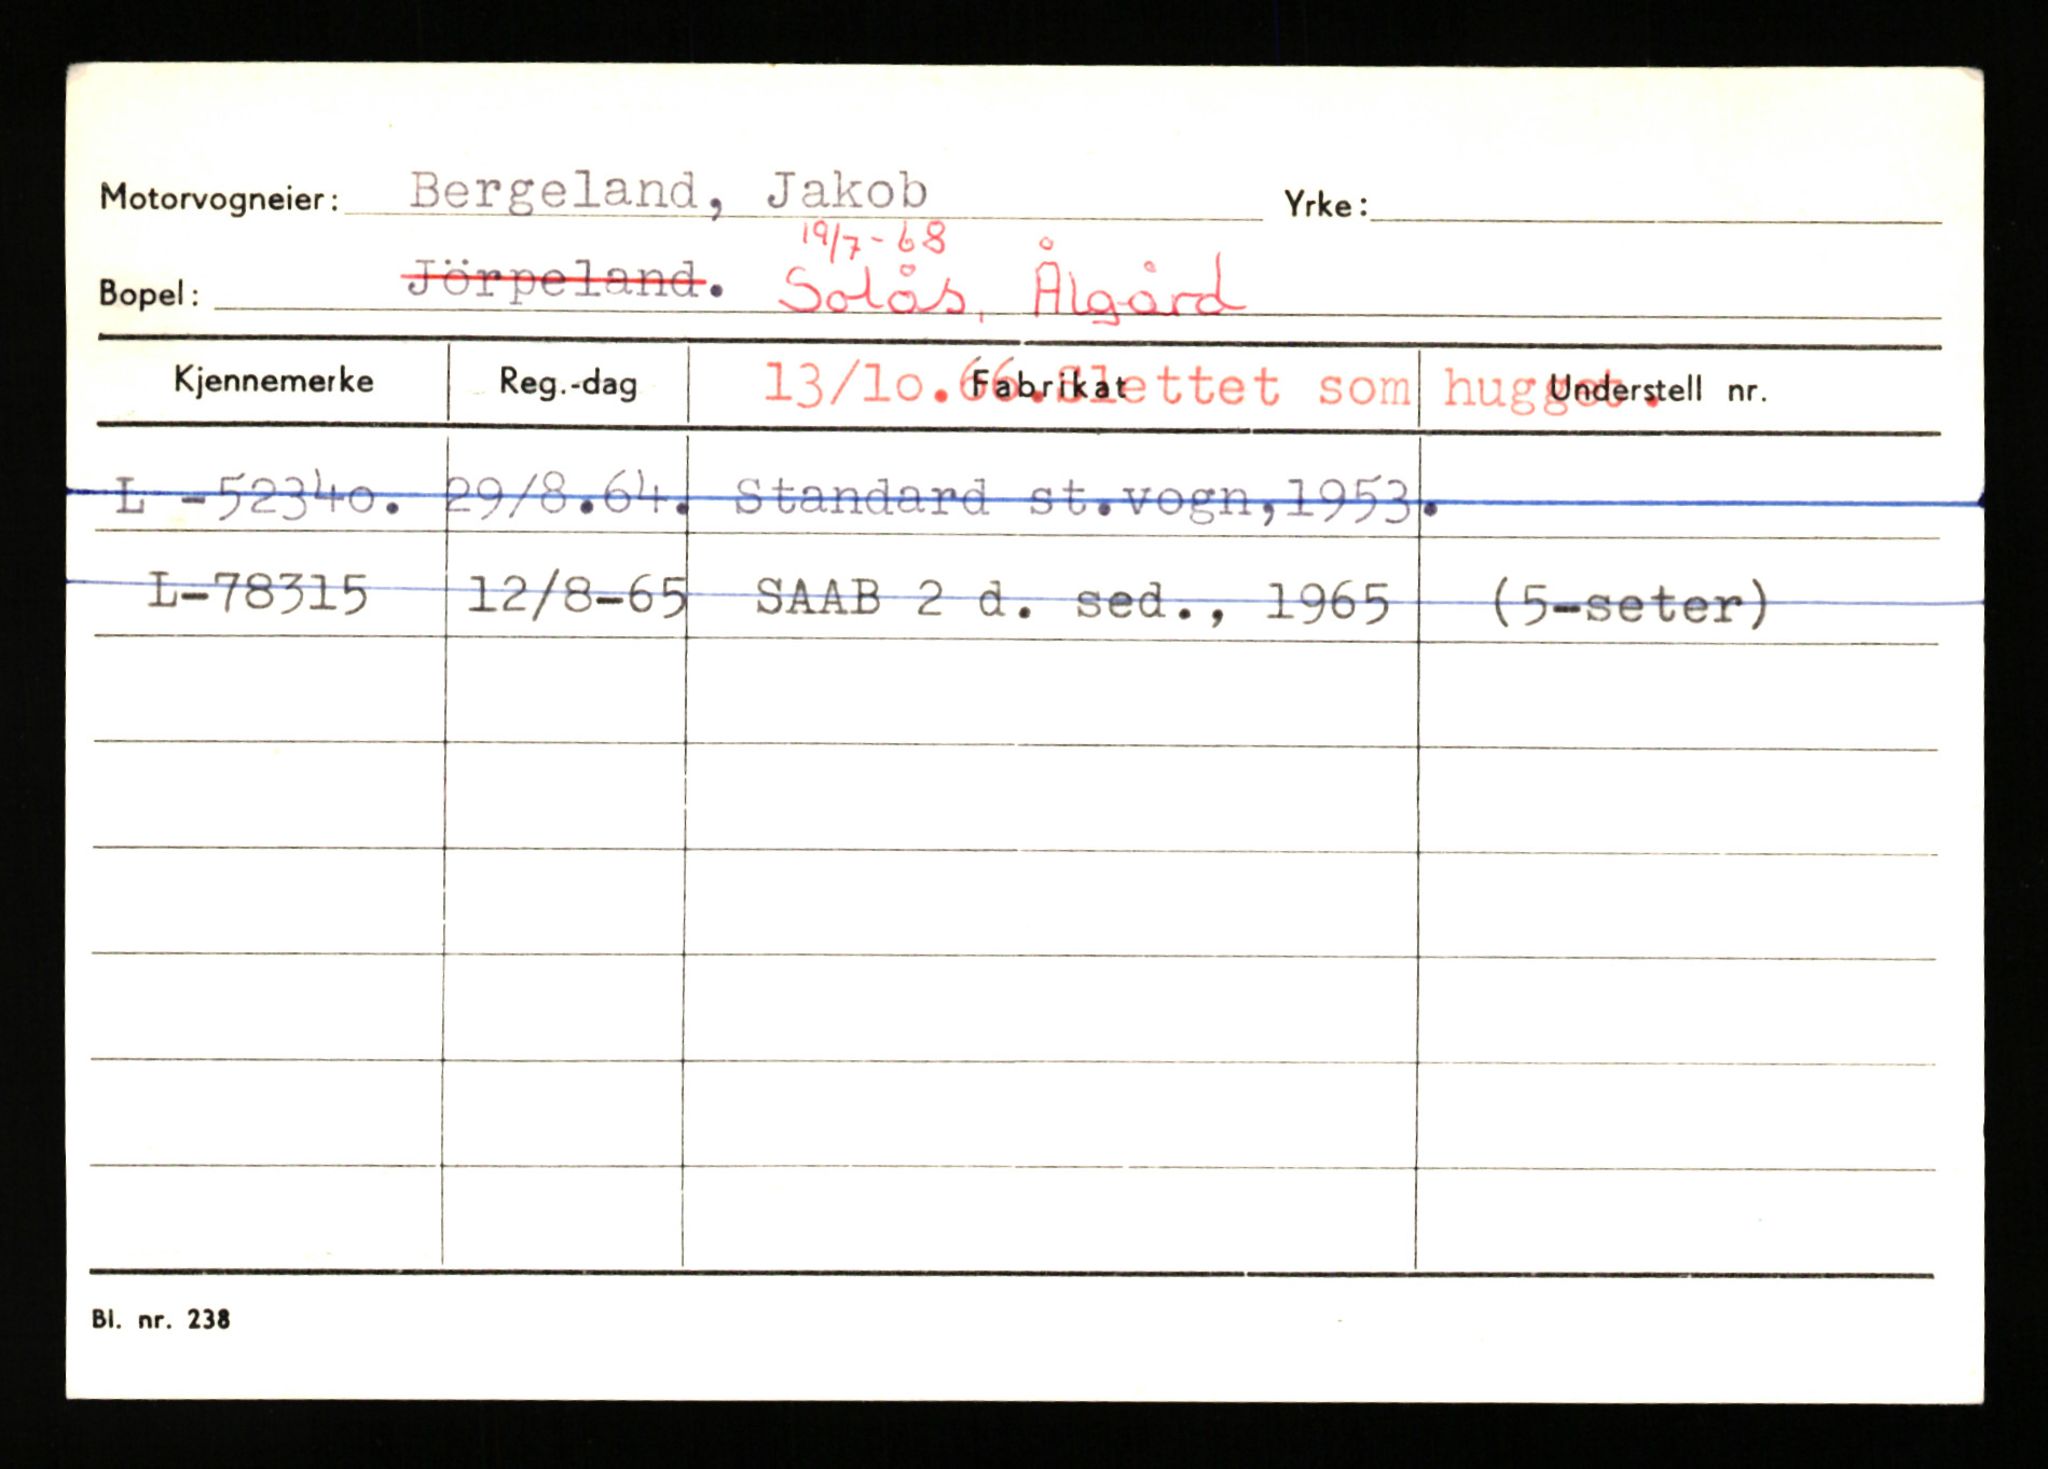 Motorvogneier: Bergeland, Jakob Yrke:
19/7-68
Bopel: Jörpeland. Solås, Ålgård
13/1o.66.Slettet som hugget.
Kjennemerke Reg.-dag Fabrikat Understell nr.
L -5234o. 29/8.64. Standard st.vogn,1953.
L-78315 12/8-65 SAAB 2 d. sed., 1965 (5-seter)
Bl. nr. 238